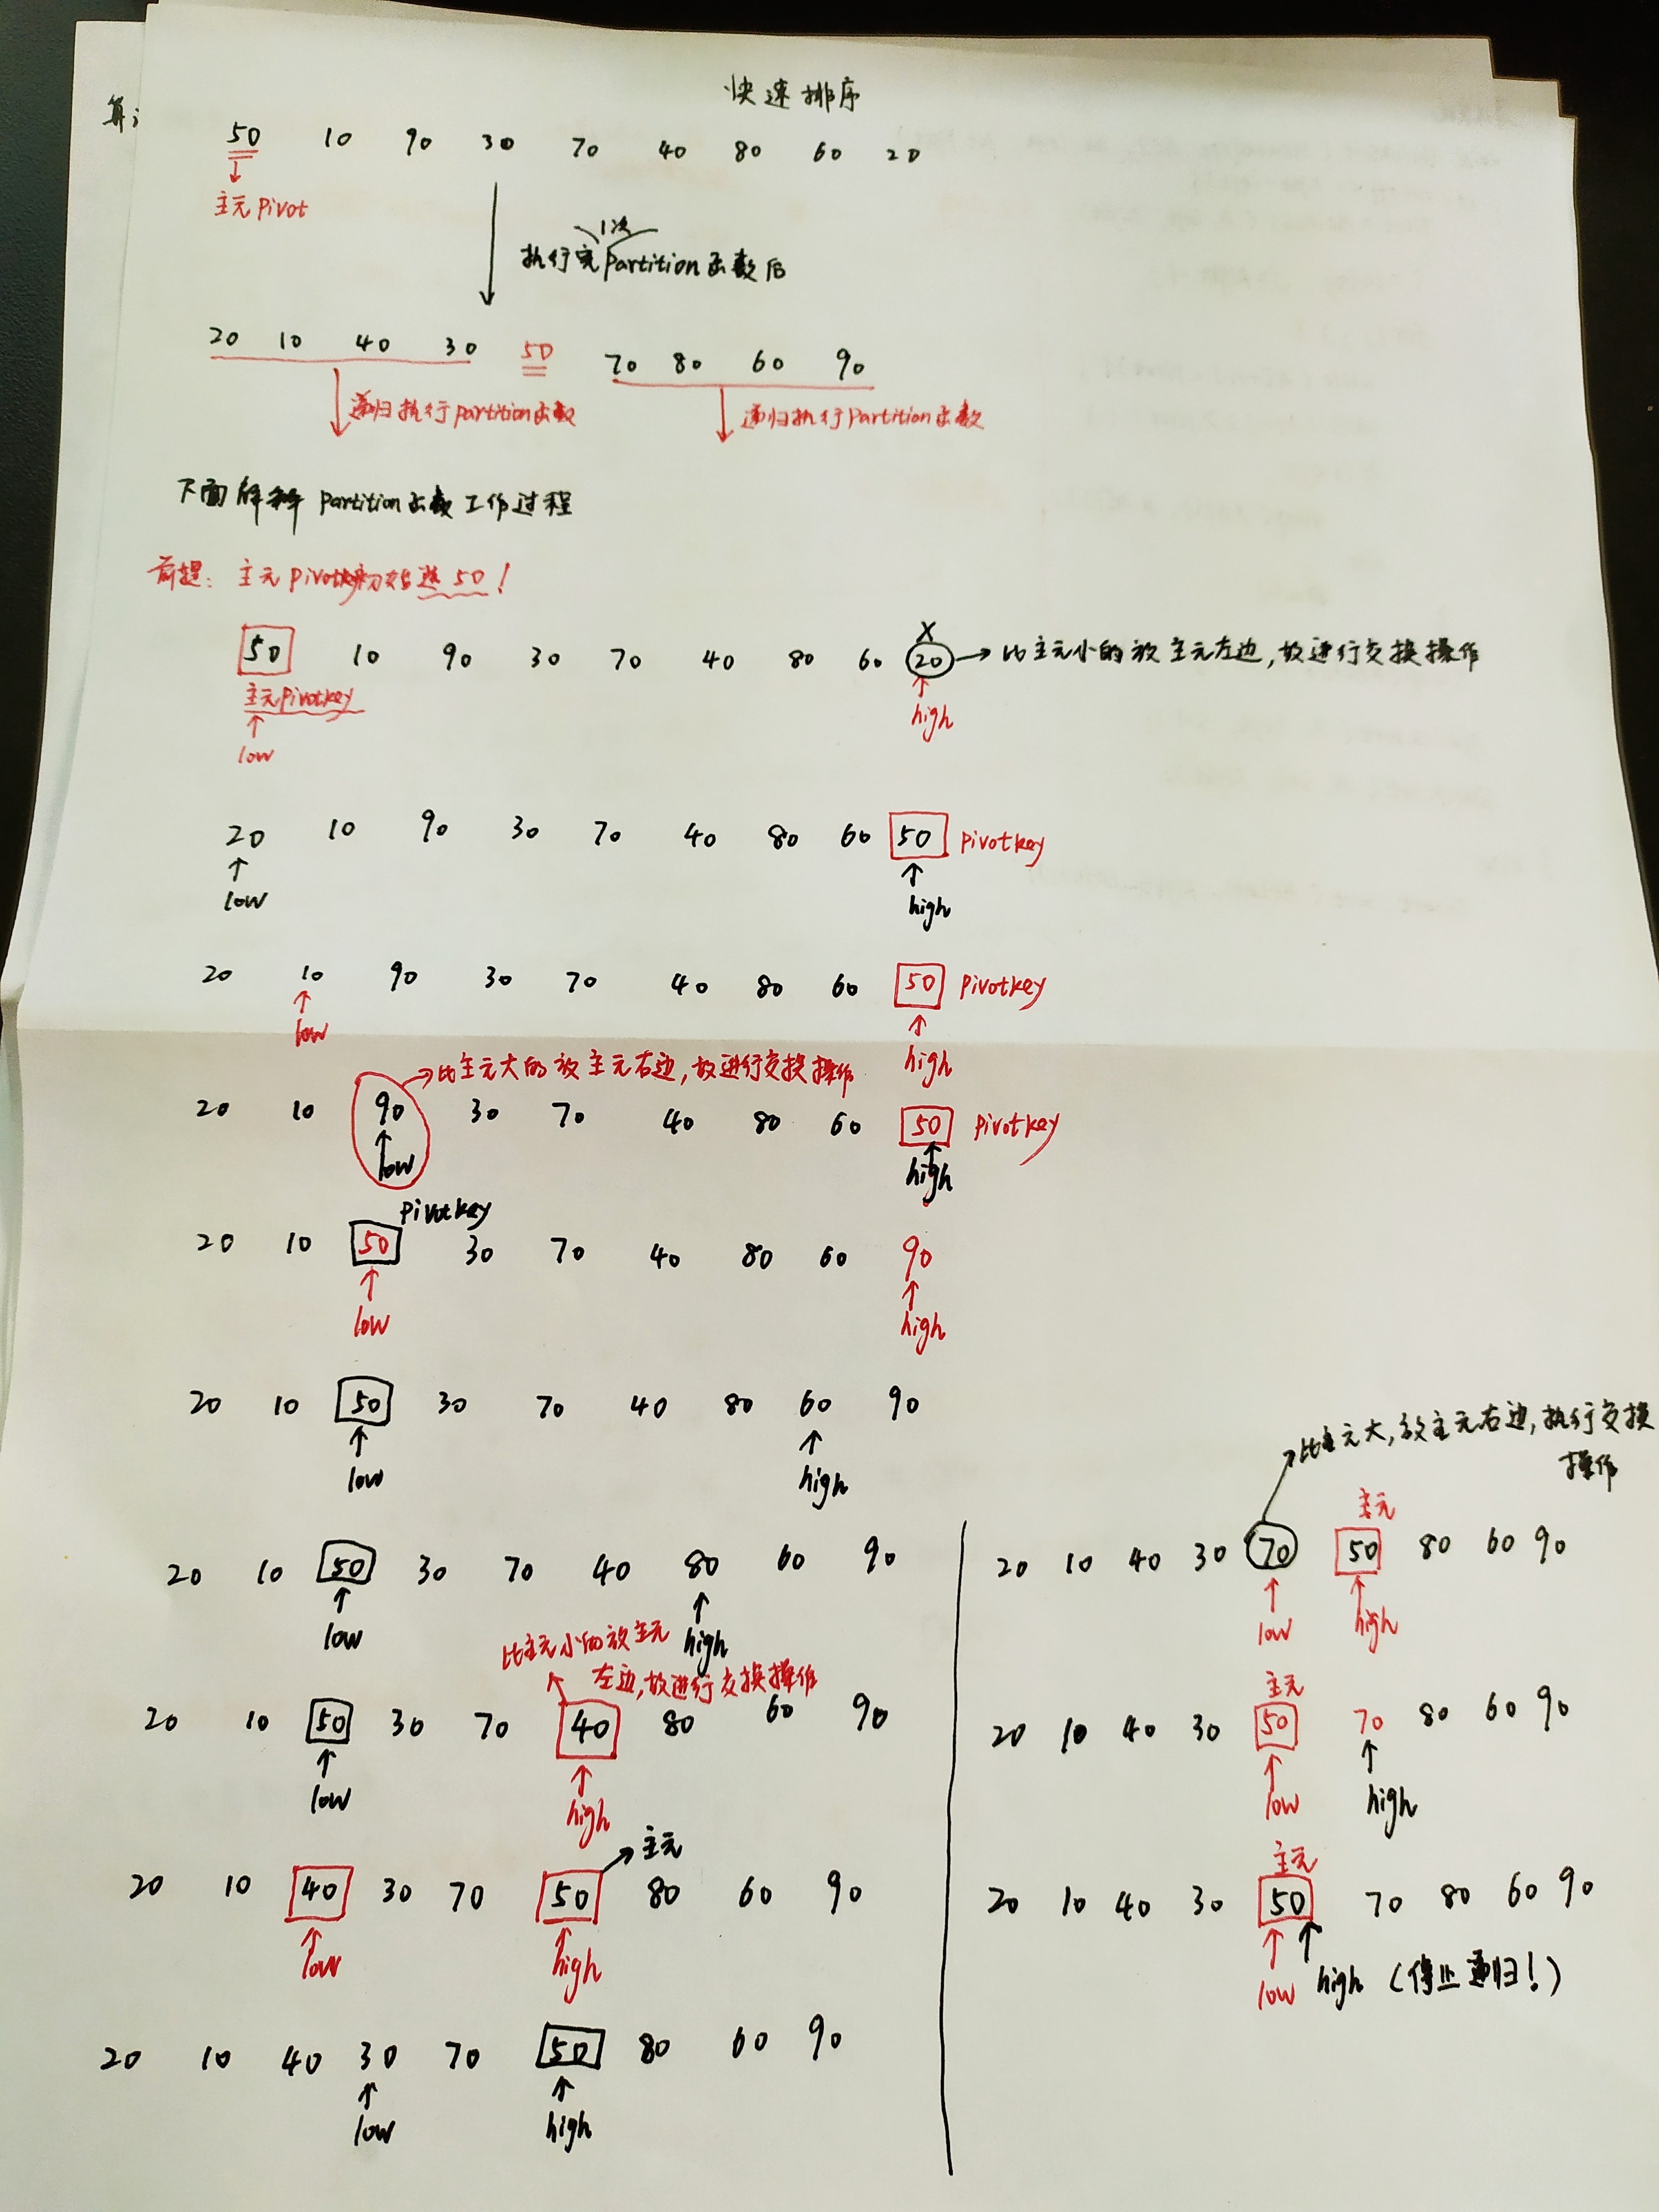 快速排序
算
50 10 90 30 70 40 80 60 20
主元Pivot
1次
执行完Partition函数后
20 10 40 30 50 70 80 60 90
递归执行Partition函数 递归执行Partition函数
下面解释Partition函数工作过程
前提：主元Pivotkey初始选50！
X
50 10 90 30 70 40 80 60 20 → 比主元小的放主元左边,故进行交换操作
主元Pivotkey high
low
20 10 90 30 70 40 80 60 50 Pivotkey
low high
20 10 90 30 70 40 80 60 50 Pivotkey
low high
比主元大的放主元右边,故进行交换操作
20 10 90 30 70 40 80 60 50 Pivotkey
low high
Pivotkey
20 10 50 30 70 40 80 60 90
low high
20 10 50 30 70 40 80 60 90
low high
20 10 50 30 70 40 80 60 90
low high
比主元小的放主元
左边,故进行交换操作
20 10 50 30 70 40 80 60 90
low high
主元
20 10 40 30 70 50 80 60 90
low high
20 10 40 30 70 50 80 60 90
low high
比主元大,放主元右边,执行交换
操作
主元
20 10 40 30 70 50 80 60 90
low high
主元
20 10 40 30 50 70 80 60 90
low high
主元
20 10 40 30 50 70 80 60 90
low high (停止递归！)